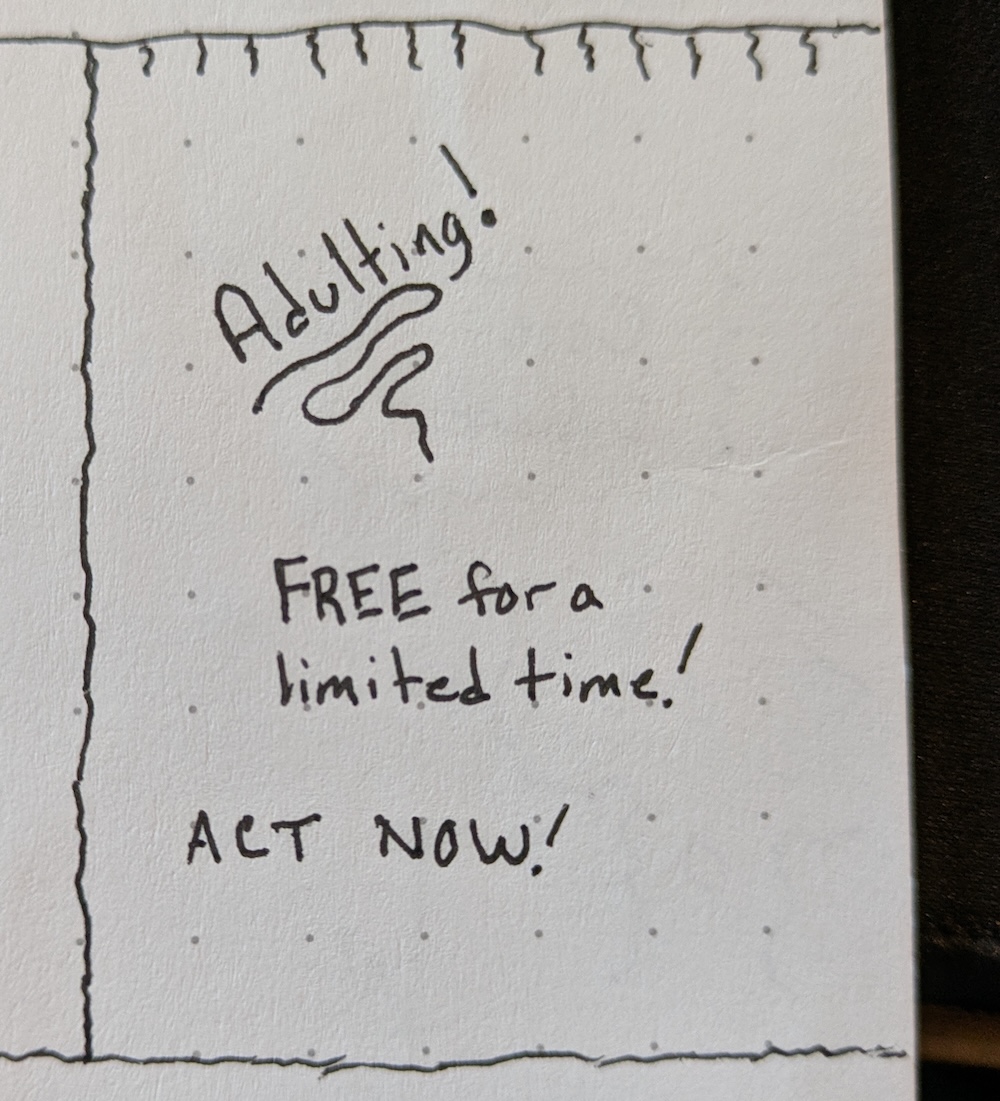 Adulting!
FREE for a
limited time!
ACT NOW!